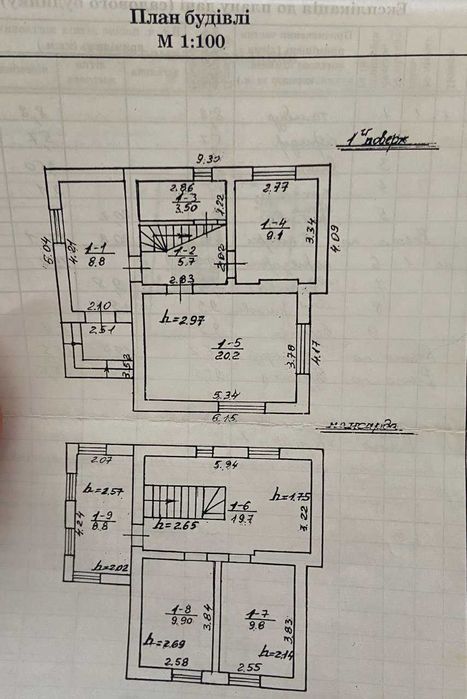 План будівлі
М 1:100
1й поверх
9.30
2.86
1-3
3.50
1.22
2.77
1-4
9.1
3.34
4.09
5.04
4.21
1-1
8.8
1-2
5.7
2.02
2.83
2.10
2.51
3.52
h=2.97
1-5
20.2
3.78
4.17
5.34
6.15
мансарда
2.07
h=2.57
4.24
1-9
8.8
h=2.02
5.94
h=1.75
1-6
19.7
h=2.65
3.22
1-8
9.90
3.84
h=2.69
2.58
1-7
9.8
3.83
h=2.14
2.55